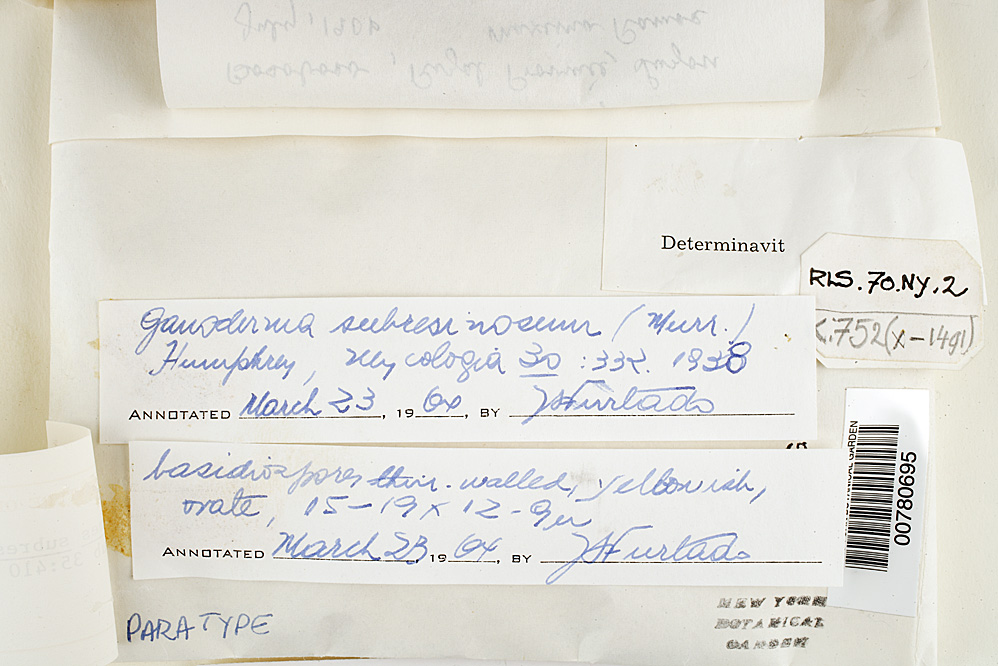 Determinavit
RLS.70.NY.2
752 (x-14gl)
Ganoderma subresinosum (Murr.)
Humphrey, Mycologia 30:332. 1938
ANNOTATED March 23, 1964, BY JSFurtado
basidiospores thin-walled, yellowish,
ovate, 15-19 x 12-9µ
ANNOTATED March 23, 1964, BY JSFurtado
PARATYPE
NEW YORK
BOTANICAL
GARDEN
BOTANICAL GARDEN
00780695